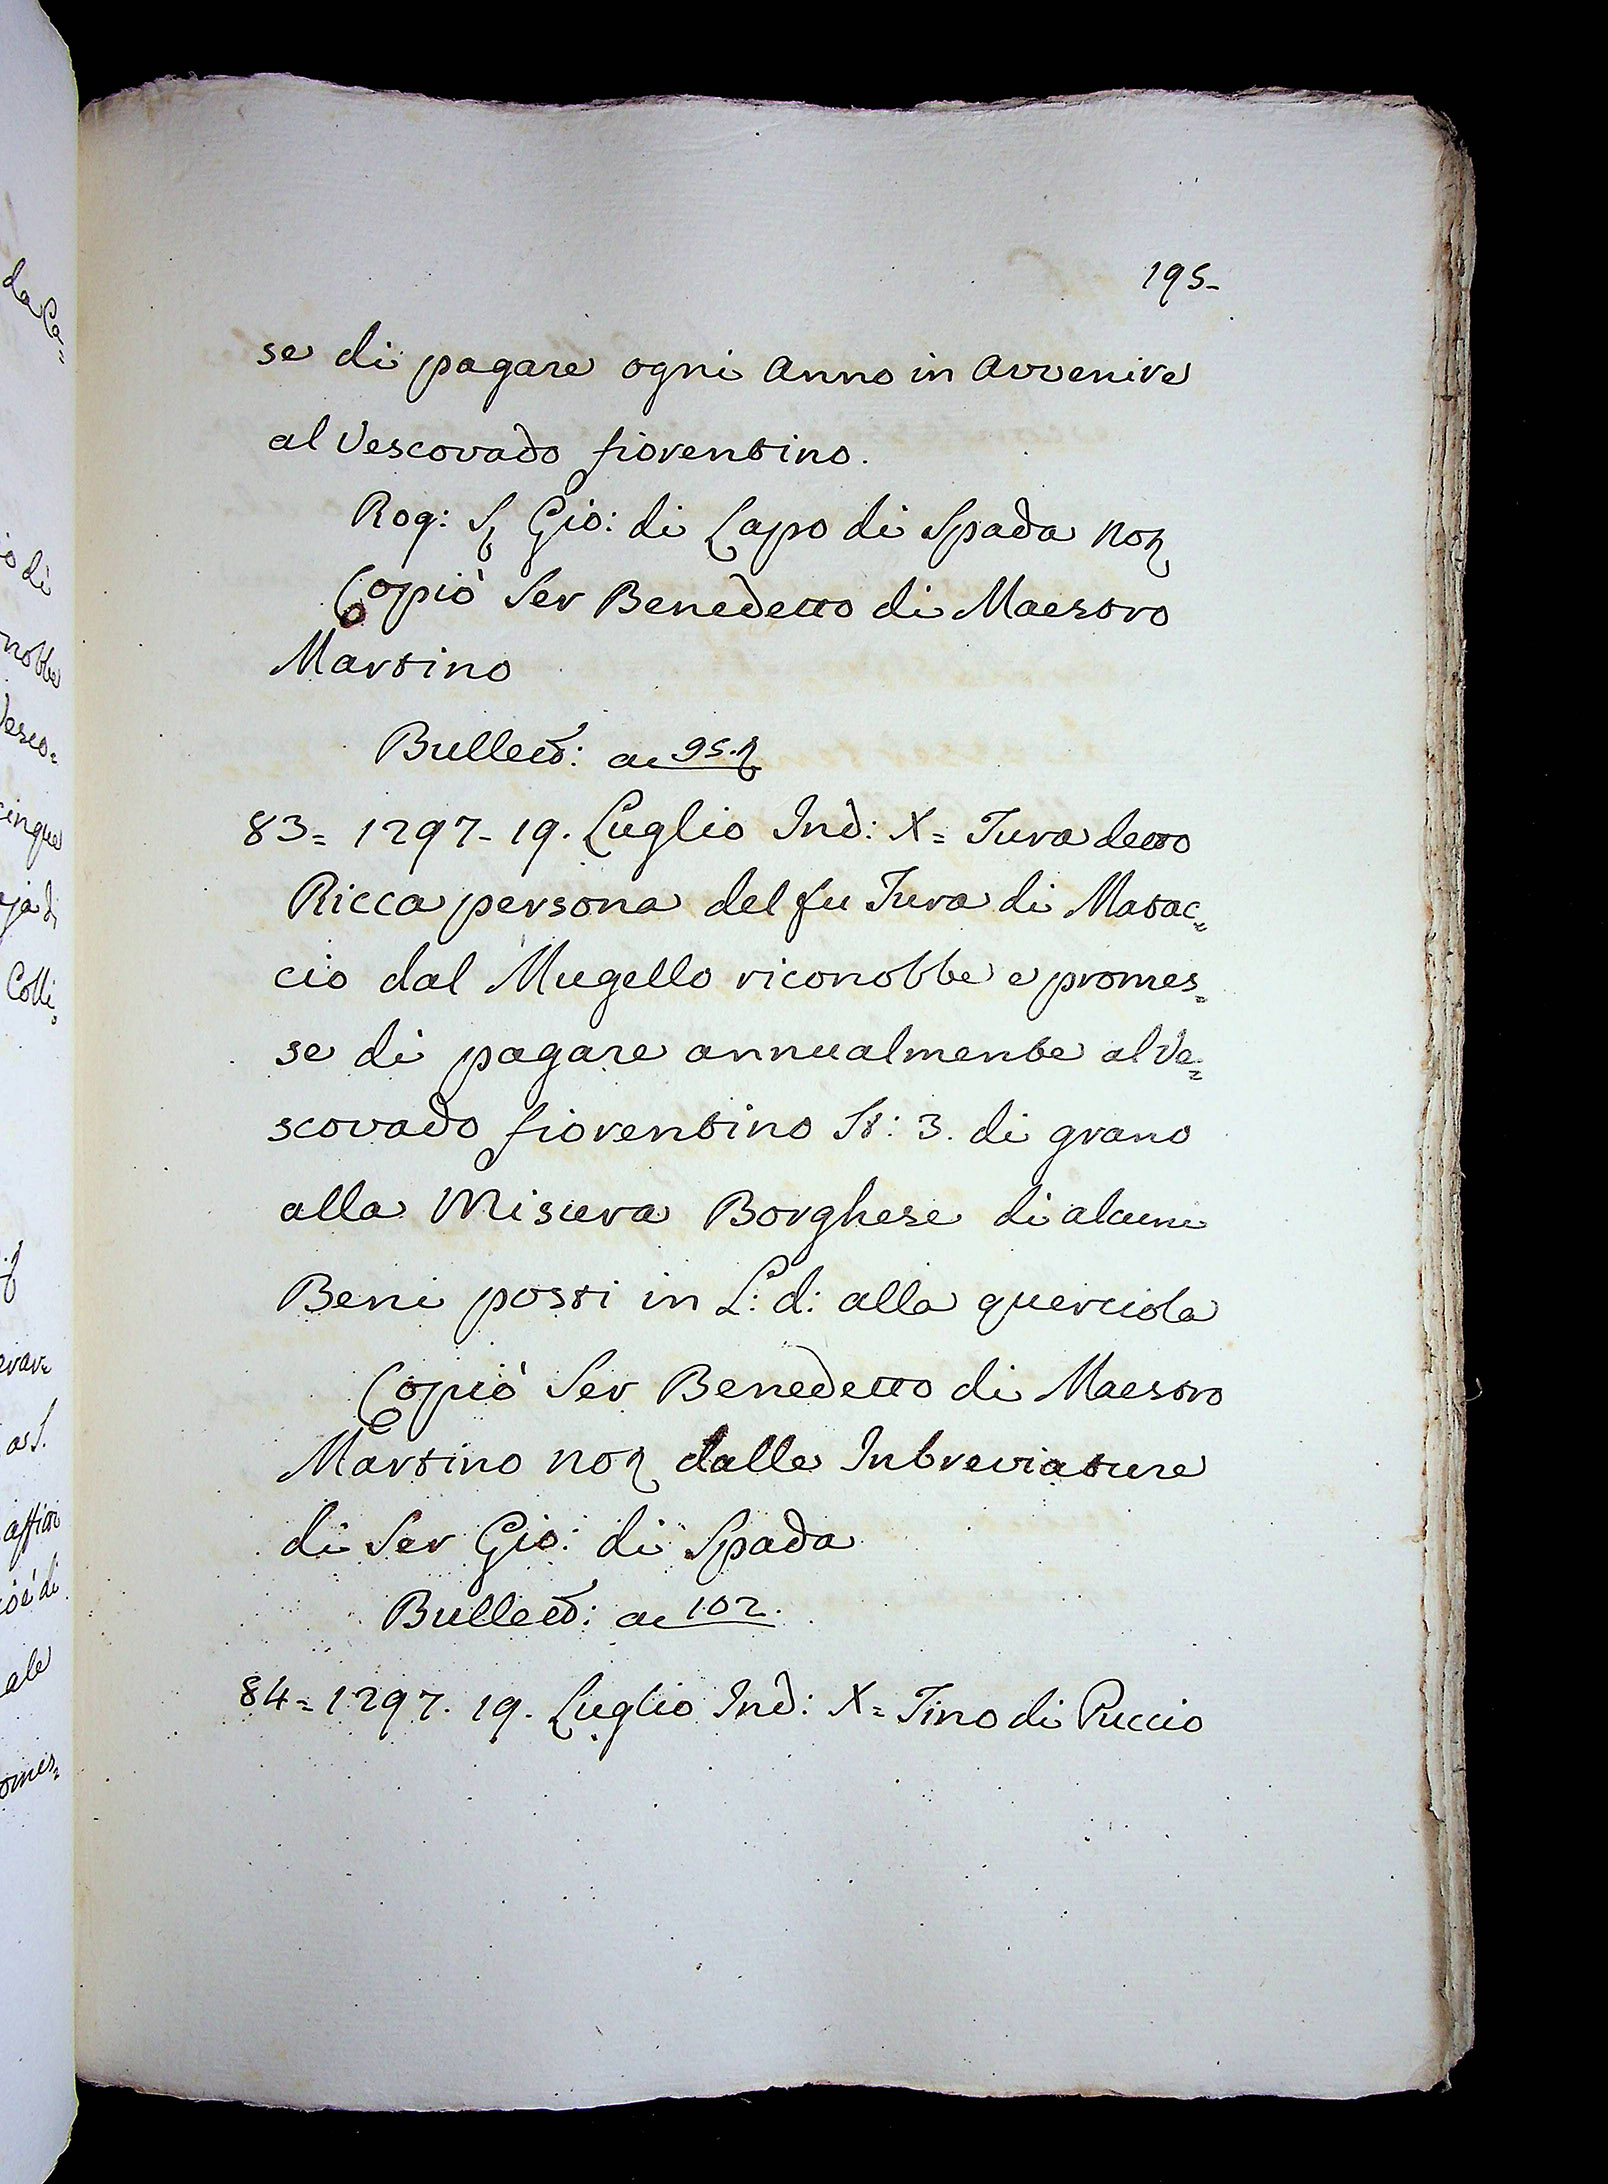 195-
se di pagare ogni Anno in Avvenire
al Vescovado fiorentino.
Rog: Sr Gio: di Lapo di Spada Nor
Copiò Ser Benedetto di Maestro
Martino
Bullett: a 95.
83= 1297- 19. Luglio Ind: X= Tura detto
Ricca persona del fu Tura di Matac=
cio dal Mugello riconobbe e promes=
se di pagare annualmente al Ve=
scovado fiorentino St: 3. di grano
alla Misura Borghese di alcuni
Beni posti in L: d: alla querciola
Copiò Ser Benedetto di Maestro
Martino Nor dalle Inbreviature
di Ser Gio: di Spada
Bullett: a 102.
84= 1297. 19. Luglio Ind: X= Tino di Puccio